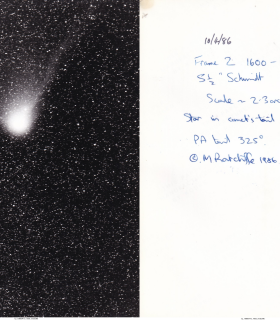 10/4/86
Frame 2 1600 -
5½" Schmidt
Scale ~ 2.3 arc
Star in comet's tail
PA tail 325°
© M Ratcliffe 1986